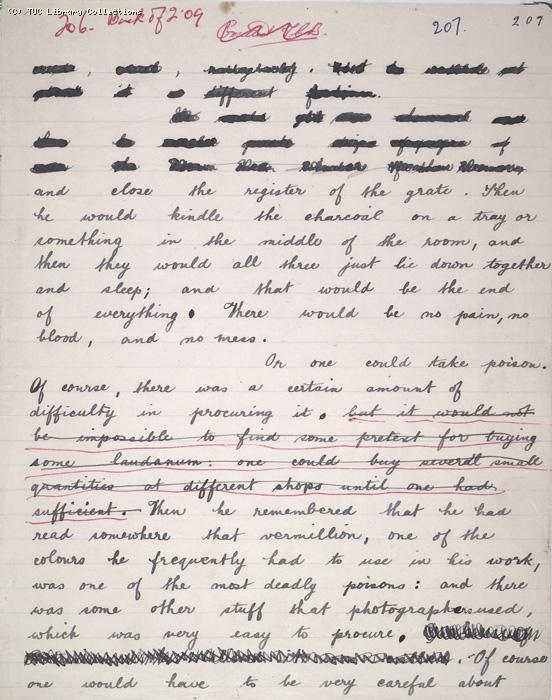 (C) TUC Library Collections
206. Back of 209
207.
207
and close the register of the grate. Then
he would kindle the charcoal on a tray or
something in the middle of the room, and
then they would all three just lie down together
and sleep; and that would be the end
of everything. There would be no pain, no
blood, and no mess.
Or one could take poison.
Of course, there was a certain amount of
difficulty in procuring it. but it would not
be impossible to find some pretext for buying
some laudanum: one could buy several small
quantities at different shops until one had
sufficient. Then he remembered that he had
read somewhere that vermillion, one of the
colours he frequently had to use in his work,
was one of the most deadly poisons: and there
was some other stuff that photographers used,
which was very easy to procure.
. Of course
one would have to be very careful about